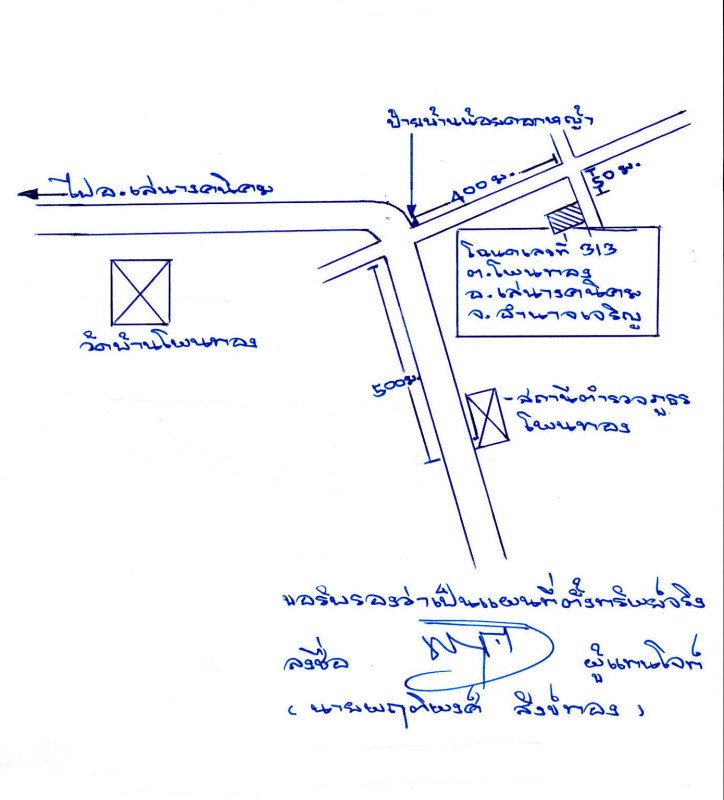 ป้ายบ้านน้อยดอกหญ้า
ไป อ.เสนางคนิคม
400 ม.
50 ม.
โฉนดเลขที่ 313
ต.โพนทอง
อ.เสนางคนิคม
จ.อำนาจเจริญ
วัดบ้านโพนทอง
500 ม.
-สถานีตำรวจภูธร
โพนทอง
ขอรับรองว่าเป็นแผนที่ตั้งทรัพย์จริง
ลงชื่อ ผู้แทนโจทก์
( นายพฤติพงศ์ สังข์ทอง )